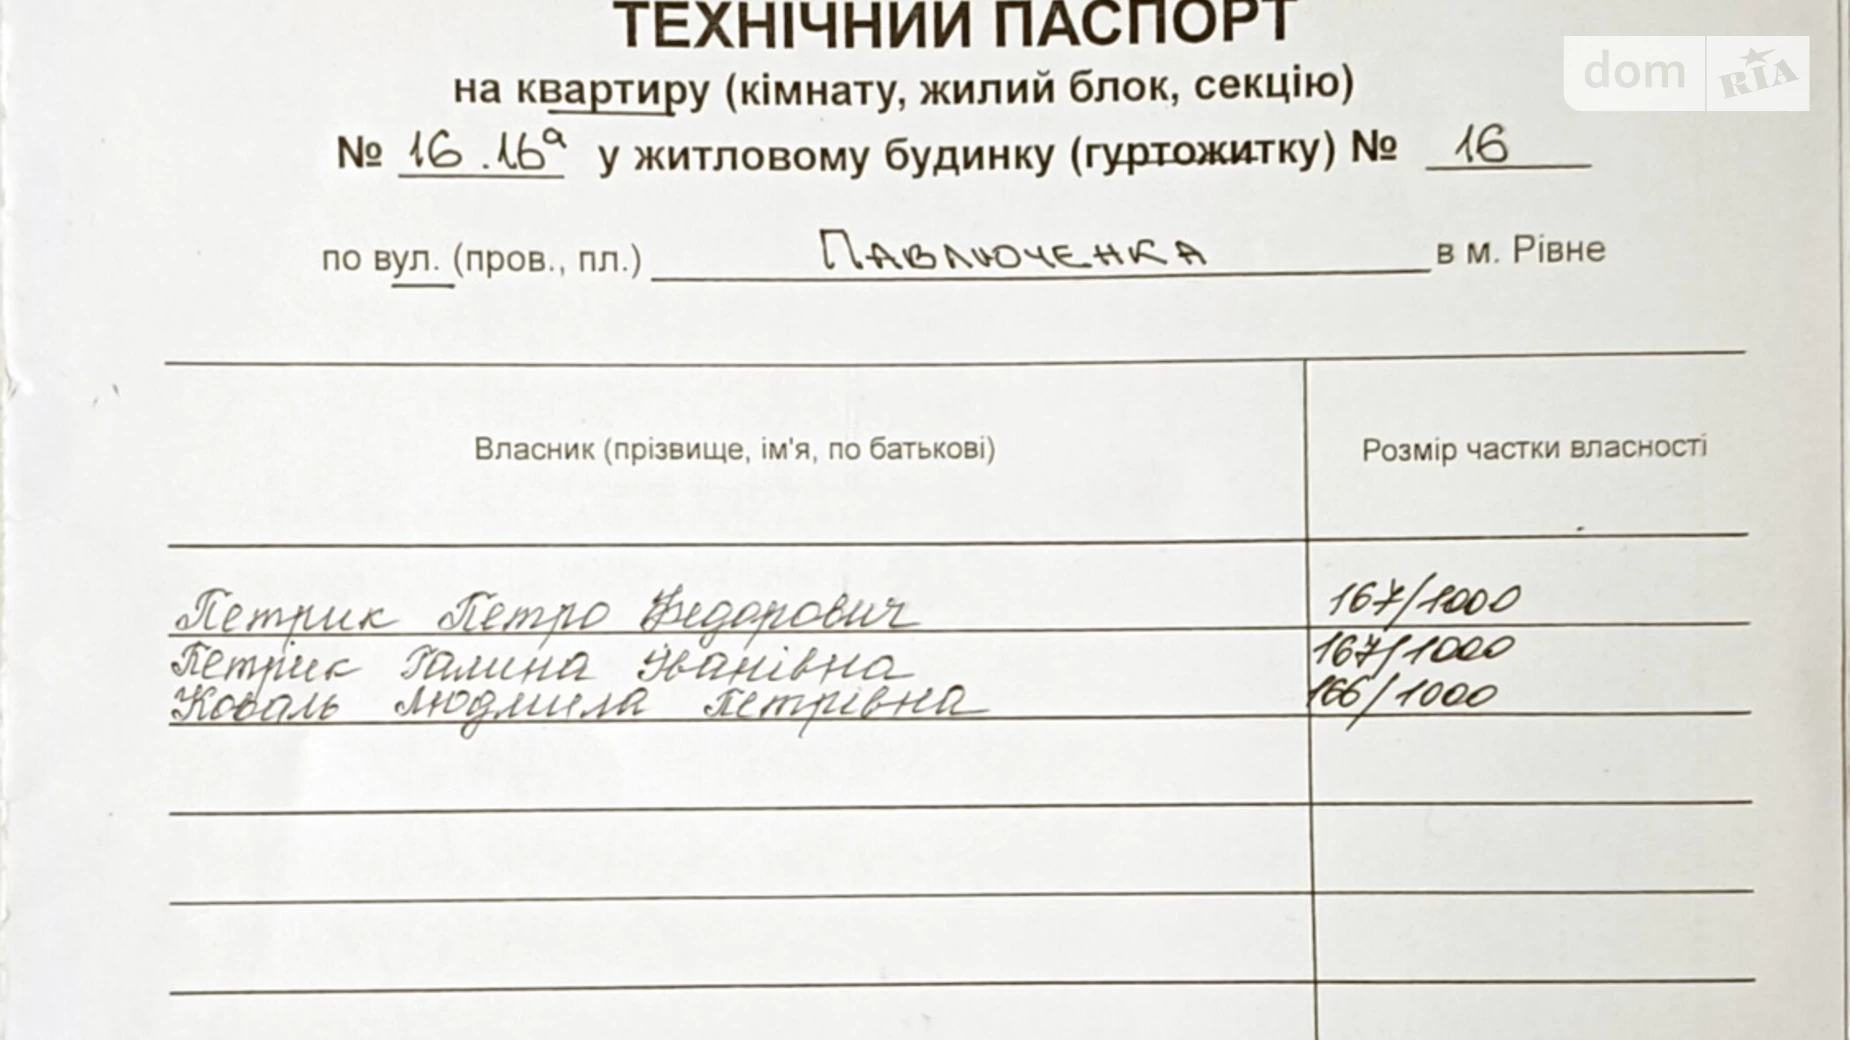 ТЕХНІЧНИЙ ПАСПОРТ
dom RIA
на квартиру (кімнату, жилий блок, секцію)
№ 16.16а у житловому будинку (гуртожитку) № 16
по вул. (пров., пл.) Павлюченка в м. Рівне
Власник (прізвище, ім'я, по батькові) Розмір частки власності
Петрик Петро Федорович 167/1000
Петрик Галина Іванівна 167/1000
Коваль Людмила Петрівна 166/1000